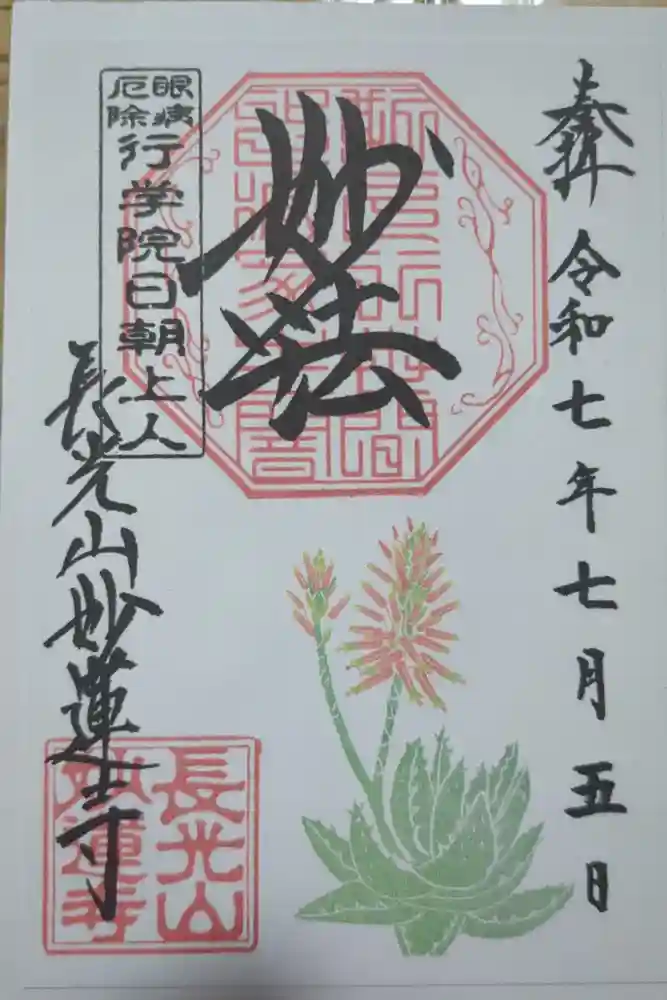 奉拝
令和七年七月五日
妙法
眼病
厄除
行学院日朝上人
長光山妙蓮寺
長光山
妙蓮寺